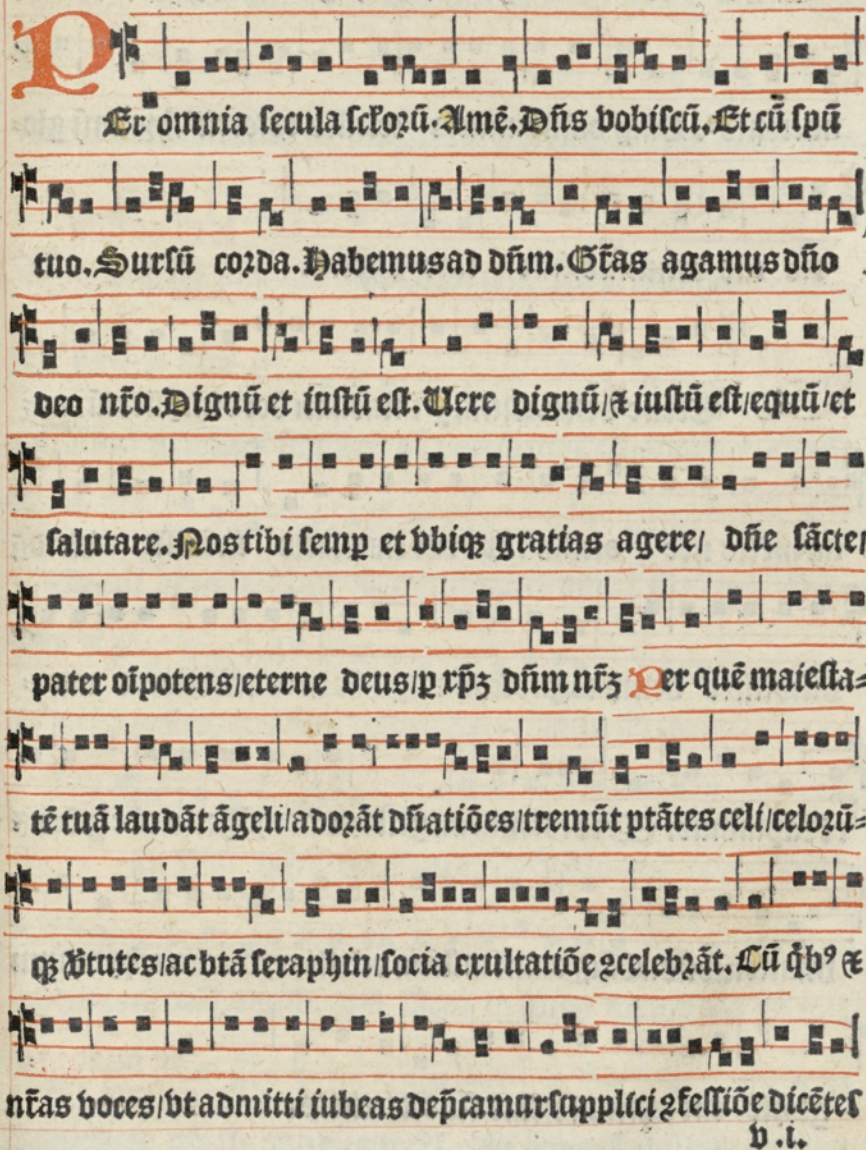 PEr omnia secula sclorū. Amē. Dñs vobiscū. Et cū spū
tuo. Sursū corda. Habemus ad dñm. Grãs agamus dño
deo nr̃o. Dignū et iustū est. Uere dignū/ ⁊ iustū est/ equū/ et
salutare. Nos tibi semꝑ et vbiqꝫ gratias agere/ dñe sãcte/
pater oĩpotens/ eterne deus/ ꝑ xp̃ꝫ dñm nr̃ꝫ Per quē maiesta⸗
tē tuã laudãt ãgeli/ adorãt dñatiões/ tremūt ptãtes celi/ celorū⸗
qꝫ v̾tutes/ ac btã seraphin/ socia exultatiõe ꝯcelebrãt. Cū q̇bꝰ ⁊
nr̃as voces/ vt admitti iubeas dep̃camur supplici ꝯfessiõe dicētes
v .i.